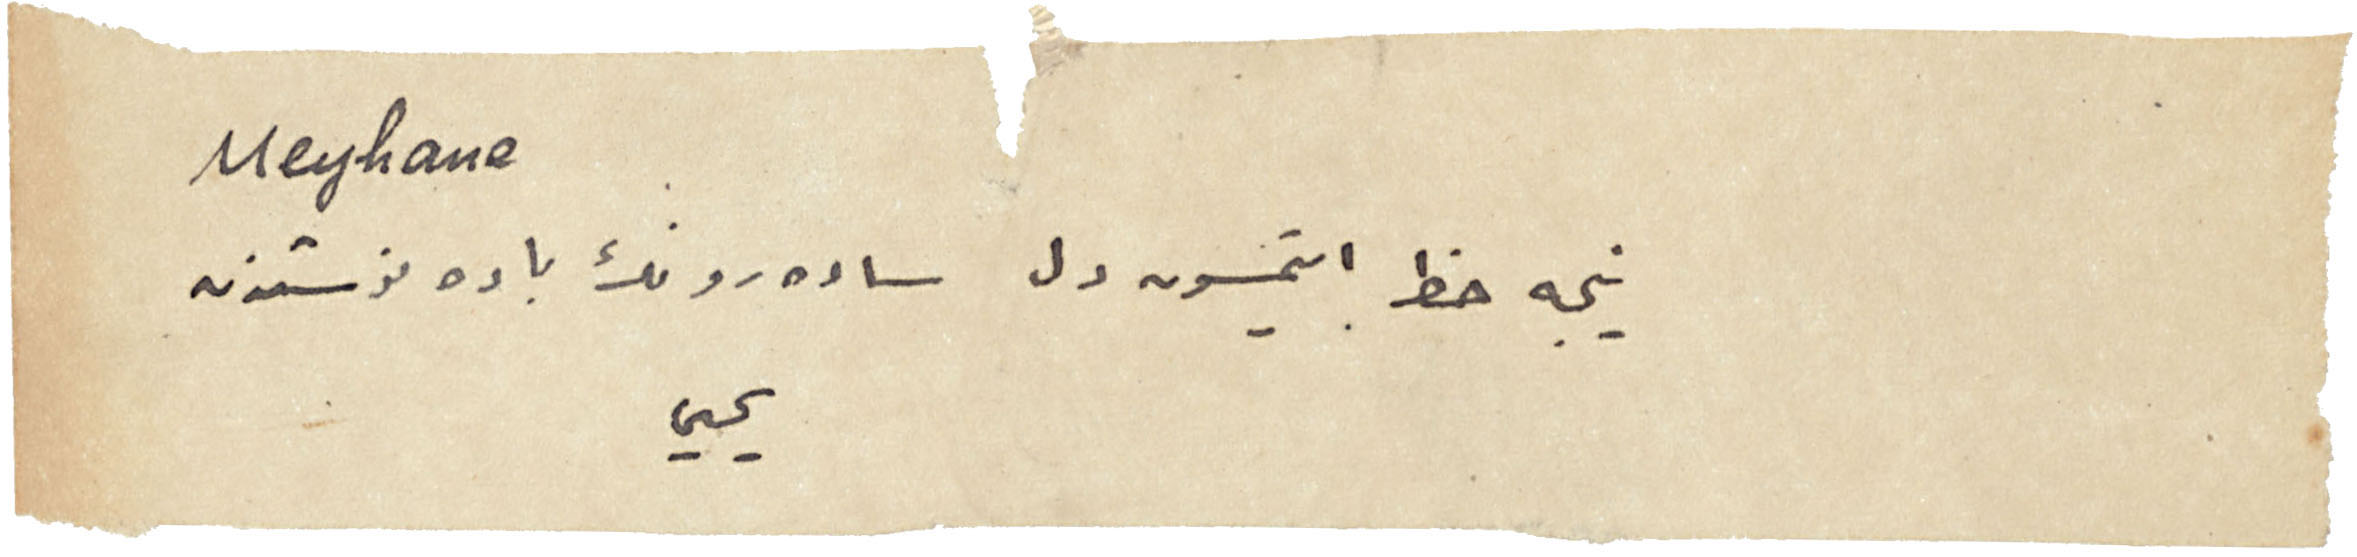 Meyhane
نیجه حظ ایتمسون دل ساده رونك باده نوشندن
یحیی